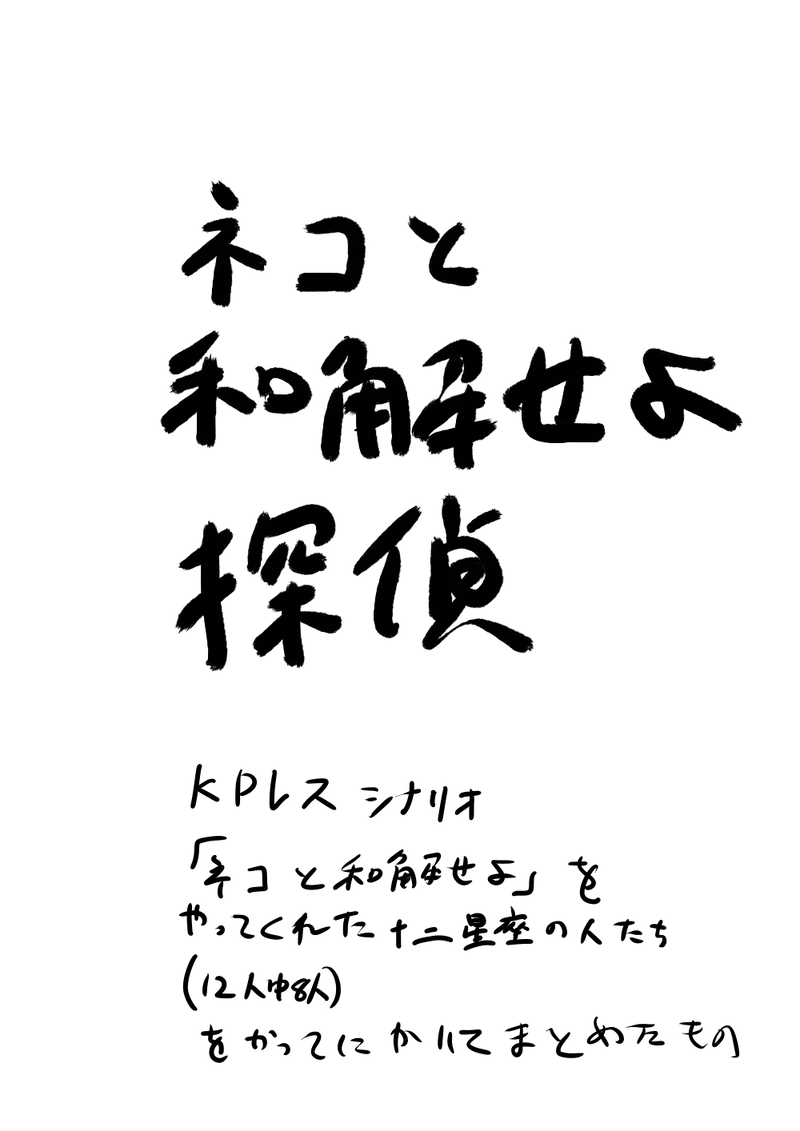 ネコと
和解せよ
探偵
KPレスシナリオ
「ネコと和解せよ」を
やってくれた十二星座の人たち
(12人中8人)
をかってにかりてまとめたもの